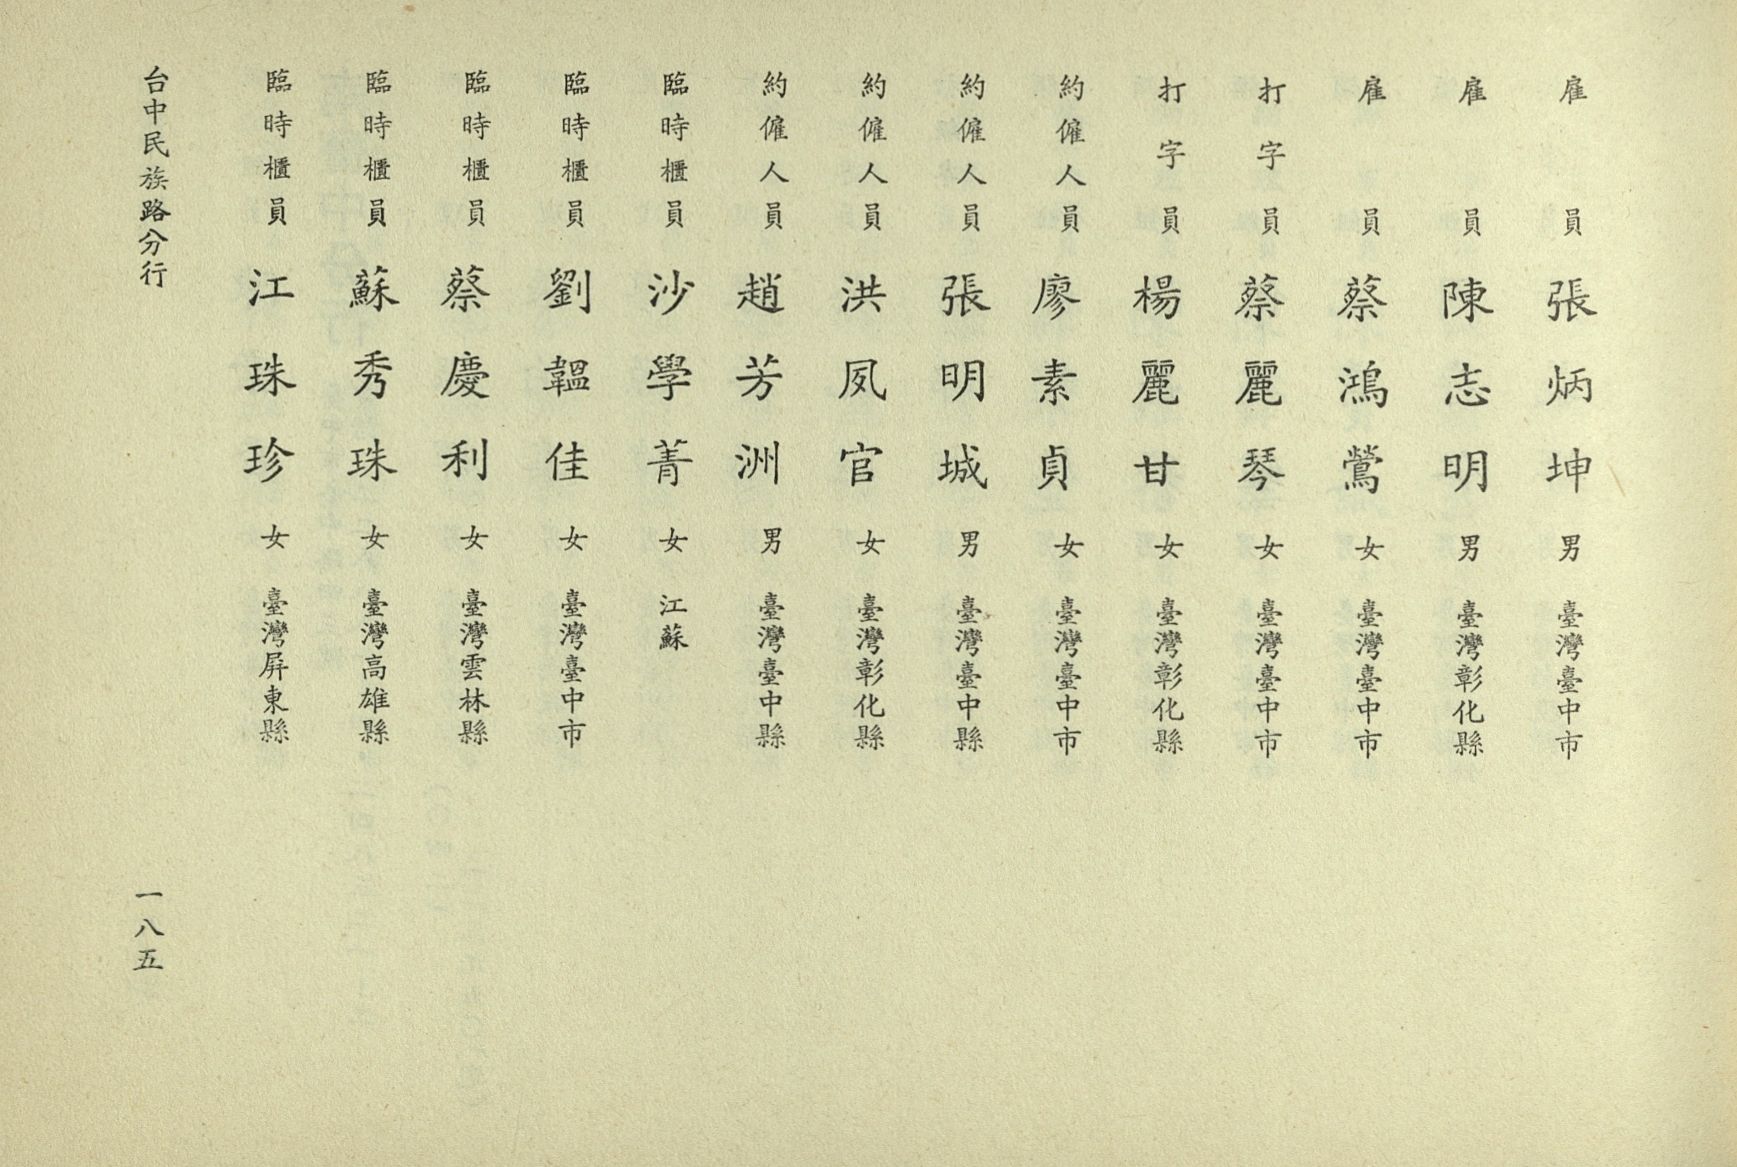 雇員 張炳坤 男 臺灣臺中市
雇員 陳志明 男 臺灣彰化縣
雇員 蔡鴻鶯 女 臺灣臺中市
打字員 蔡麗琴 女 臺灣臺中市
打字員 楊麗甘 女 臺灣彰化縣
約僱人員 廖素貞 女 臺灣臺中市
約僱人員 張明城 男 臺灣臺中縣
約僱人員 洪夙官 女 臺灣彰化縣
約僱人員 趙芳洲 男 臺灣臺中縣
臨時櫃員 沙學菁 女 江蘇
臨時櫃員 劉韞佳 女 臺灣臺中市
臨時櫃員 蔡慶利 女 臺灣雲林縣
臨時櫃員 蘇秀珠 女 臺灣高雄縣
臨時櫃員 江珠珍 女 臺灣屏東縣
台中民族路分行 一八五